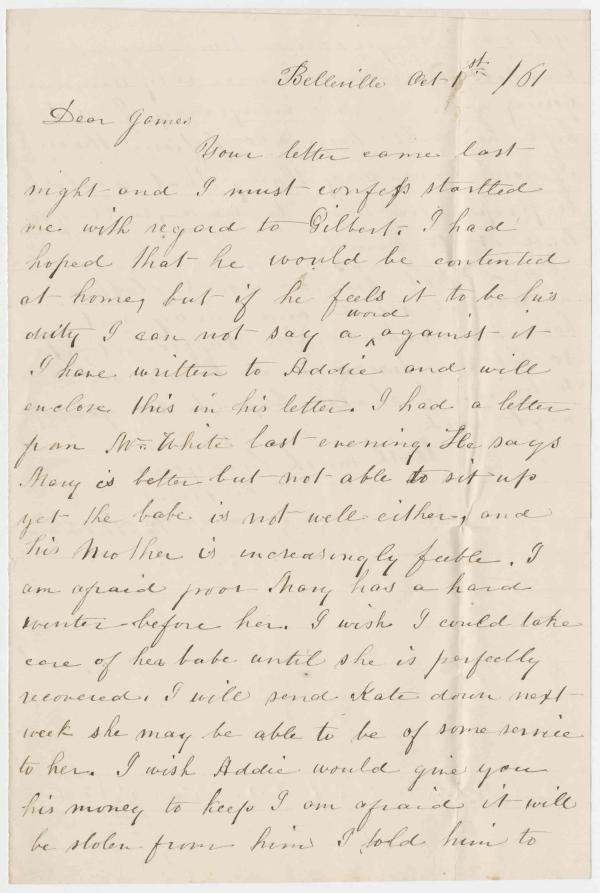 Belleville Oct 1st /61
Dear James
Your letter came last
night and I must confess startted
me with regard to Gilbert. I had
hoped that he would be contented
at home, but if he feels it to be his
duity I can not say a word against it
I have written to Addie and will
enclose this in his letter. I had a letter
from Mr. White last evening. He says
Mary is better but not able to sit up
yet the babe is not well either, and
his Mother is increasingly feeble. I
am afraid poor Mary has a hard
winter before her. I wish I could take
care of her babe until she is perfectly
recovered. I will send Kate down next
week she may be able to be of some service
to her. I wish Addie would give you
his money to keep I am afraid it will
be stolen from him I told him to